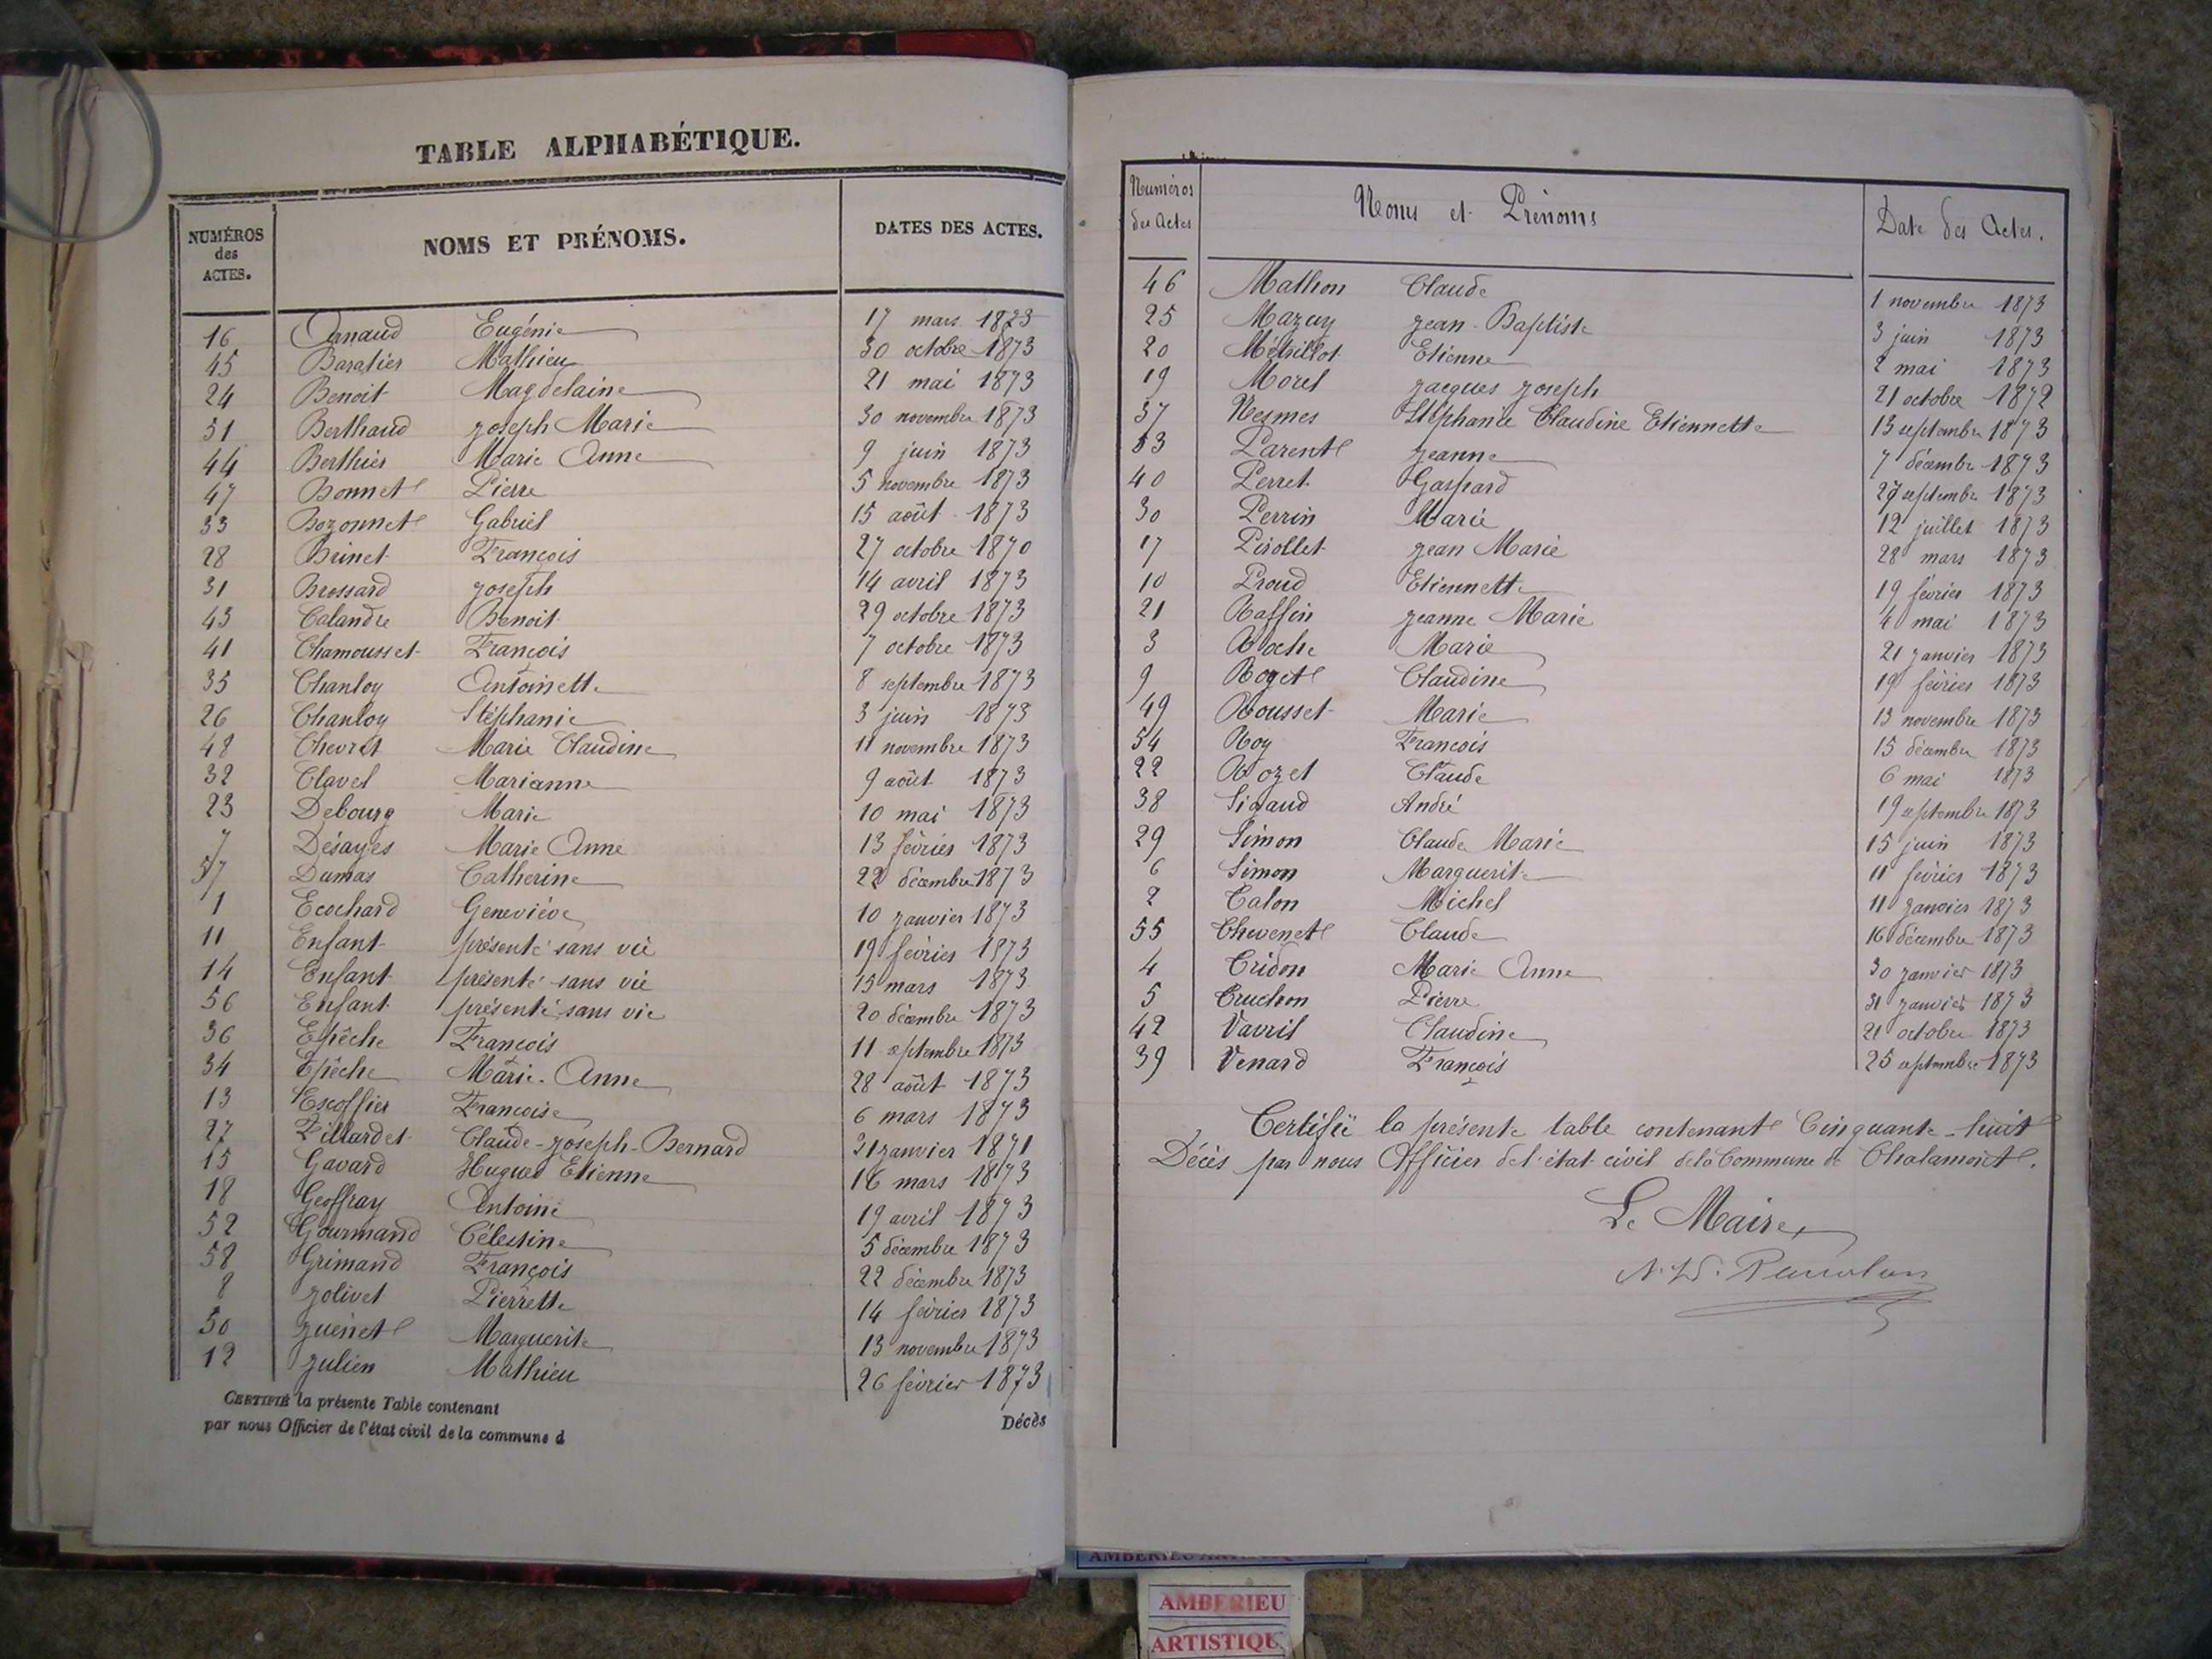 TABLE ALPHABÉTIQUE.
NUMÉROS des ACTES. NOMS ET PRÉNOMS. DATES DES ACTES.
16 Arnaud Eugénie 17 mars 1873
45 Baratier Mathieu 30 octobre 1873
24 Benoit Magdelaine 21 mai 1873
51 Berthaud Joseph Marie 30 novembre 1873
44 Berthier Marie Anne 9 juin 1873
47 Bonnet Pierre 5 novembre 1873
33 Bozonnet Gabriel 15 août 1873
28 Brinet François 27 octobre 1870
31 Brossard Joseph 14 avril 1873
43 Calandre Benoit 29 octobre 1873
41 Chamousset François 7 octobre 1873
35 Chanloy Antoinette 8 septembre 1873
26 Chanloy Stéphanie 3 juin 1873
48 Chevret Marie Claudine 11 novembre 1873
32 Clavel Marianne 9 août 1873
23 Debourg Marie 10 mai 1873
7 Désayes Marie Anne 13 février 1873
57 Dumas Catherine 22 décembre 1873
1 Ecochard Geneviève 10 janvier 1873
11 Enfant présenté sans vie 19 février 1873
14 Enfant présenté sans vie 15 mars 1873
56 Enfant présenté sans vie 20 décembre 1873
36 Epêche François 11 septembre 1873
34 Epêche Marie-Anne 28 août 1873
13 Escoffier Françoise 6 mars 1873
27 Fillardet Claude-Joseph-Bernard 21 janvier 1871
15 Gavard Hugues Etienne 16 mars 1873
18 Geoffray Antoine 19 avril 1873
52 Gourmand Célestine 5 décembre 1873
58 Grimand François 22 décembre 1873
8 Jolivet Pierrette 14 février 1873
50 Juénet Marguerite 13 novembre 1873
12 Julien Mathieu 26 février 1873
CERTIFIÉ la présente Table contenant Décès
par nous Officier de l'état civil de la commune d
Numéros des Actes Noms et Prénoms Date des Actes.
46 Mathon Claude 1 novembre 1873
25 Mazuy Jean-Baptiste 3 juin 1873
20 Métrillot Etienne 2 mai 1873
19 Morel Jacques Joseph 21 octobre 1872
37 Nesmes Stéphanie Claudine Etiennette 13 septembre 1873
53 Parent Jeanne 7 décembre 1873
40 Perret Gaspard 27 septembre 1873
30 Perrin Marie 12 juillet 1873
17 Pirollet Jean Marie 28 mars 1873
10 Proud Etiennette 19 février 1873
21 Raffin Jeanne Marie 4 mai 1873
3 Roche Marie 21 janvier 1873
9 Roget Claudine 19 février 1873
49 Rousset Marie 13 novembre 1873
54 Roy François 15 décembre 1873
22 Rozet Claude 6 mai 1873
38 Sigaud André 19 septembre 1873
29 Simon Claude Marie 15 juin 1873
6 Simon Marguerite 11 février 1873
2 Talon Michel 11 janvier 1873
55 Thevenet Claude 16 décembre 1873
4 Tridon Marie Anne 30 janvier 1873
5 Truchon Pierre 31 janvier 1873
42 Vavril Claudine 21 octobre 1873
39 Venard François 25 septembre 1873
Certifié la présente table contenant Cinquante-huit
Décès par nous Officier de l'état civil de la Commune de Chalamont.
Le Maire,
AMBERIEU
AMBERIEU
ARTISTIQU